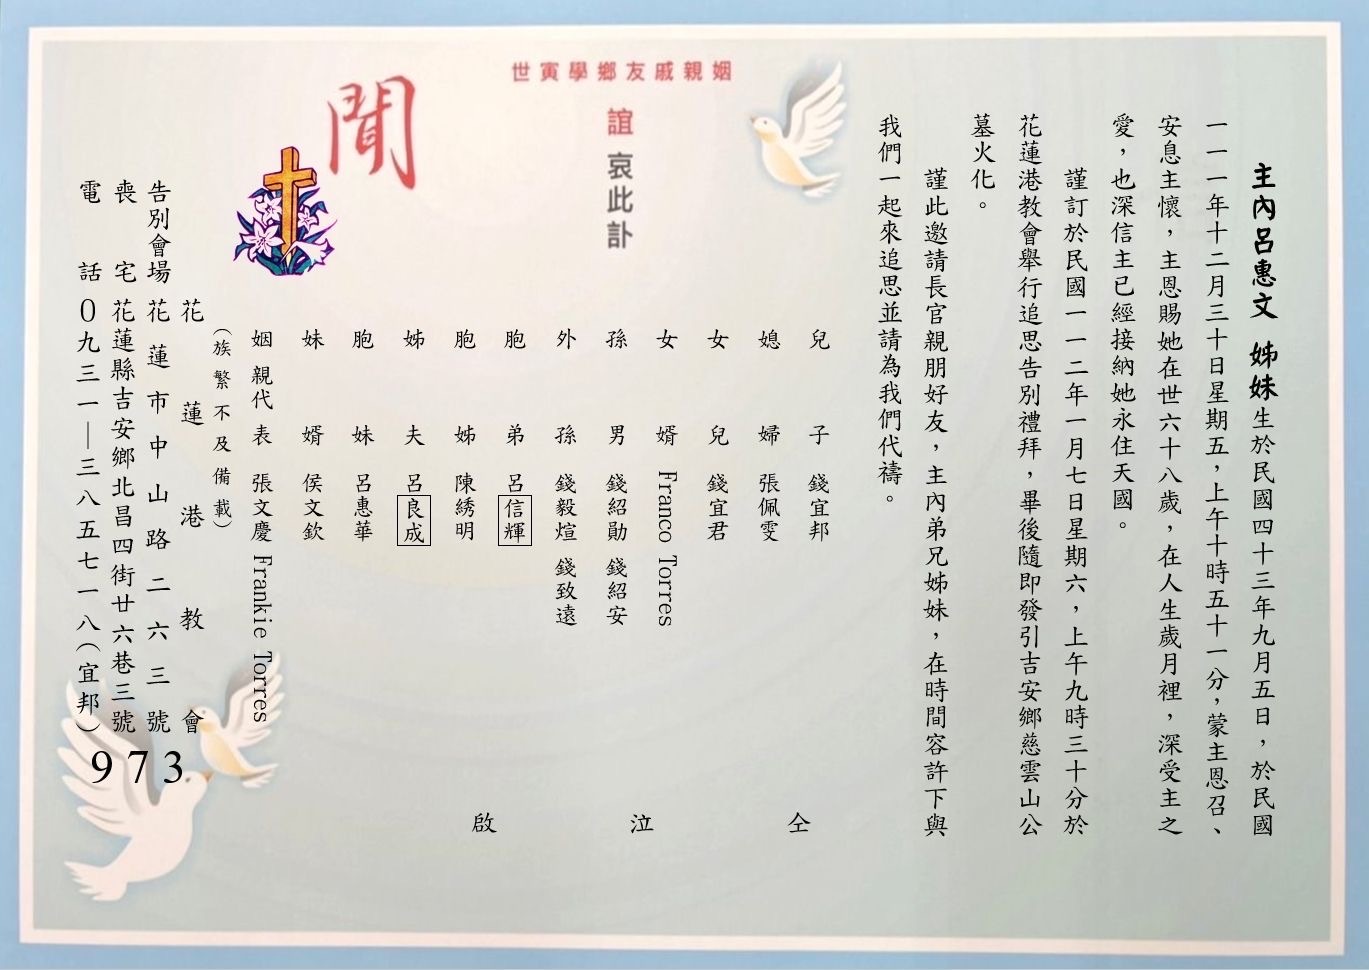 主內呂惠文 姊妹生於民國四十三年九月五日，於民國
一一一年十二月三十日星期五，上午十時五十一分，蒙主恩召、
安息主懷，主恩賜她在世六十八歲，在人生歲月裡，深受主之
愛，也深信主已經接納她永住天國。
謹訂於民國一一二年一月七日星期六，上午九時三十分於
花蓮港教會舉行追思告別禮拜，畢後隨即發引吉安鄉慈雲山公
墓火化。
謹此邀請長官親朋好友，主內弟兄姊妹，在時間容許下與
我們一起來追思並請為我們代禱。
世寅學鄉友戚親姻
誼 哀此訃
聞
兒子 錢宜邦
媳婦 張佩雯
女兒 錢宜君
女婿 Franco Torres
孫男 錢紹勛 錢紹安
外孫 錢毅煊 錢致遠
胞弟 呂信輝
胞姊 陳綉明
姊夫 呂良成
胞妹 呂惠華
妹婿 侯文欽
姻親代表 張文慶 Frankie Torres
仝泣啟
（族繁不及備載）
花蓮港教會
告別會場 花蓮市中山路二六三號
喪宅 花蓮縣吉安鄉北昌四街廿六巷三號
電話 0九三一—三八五七一八（宜邦）
973